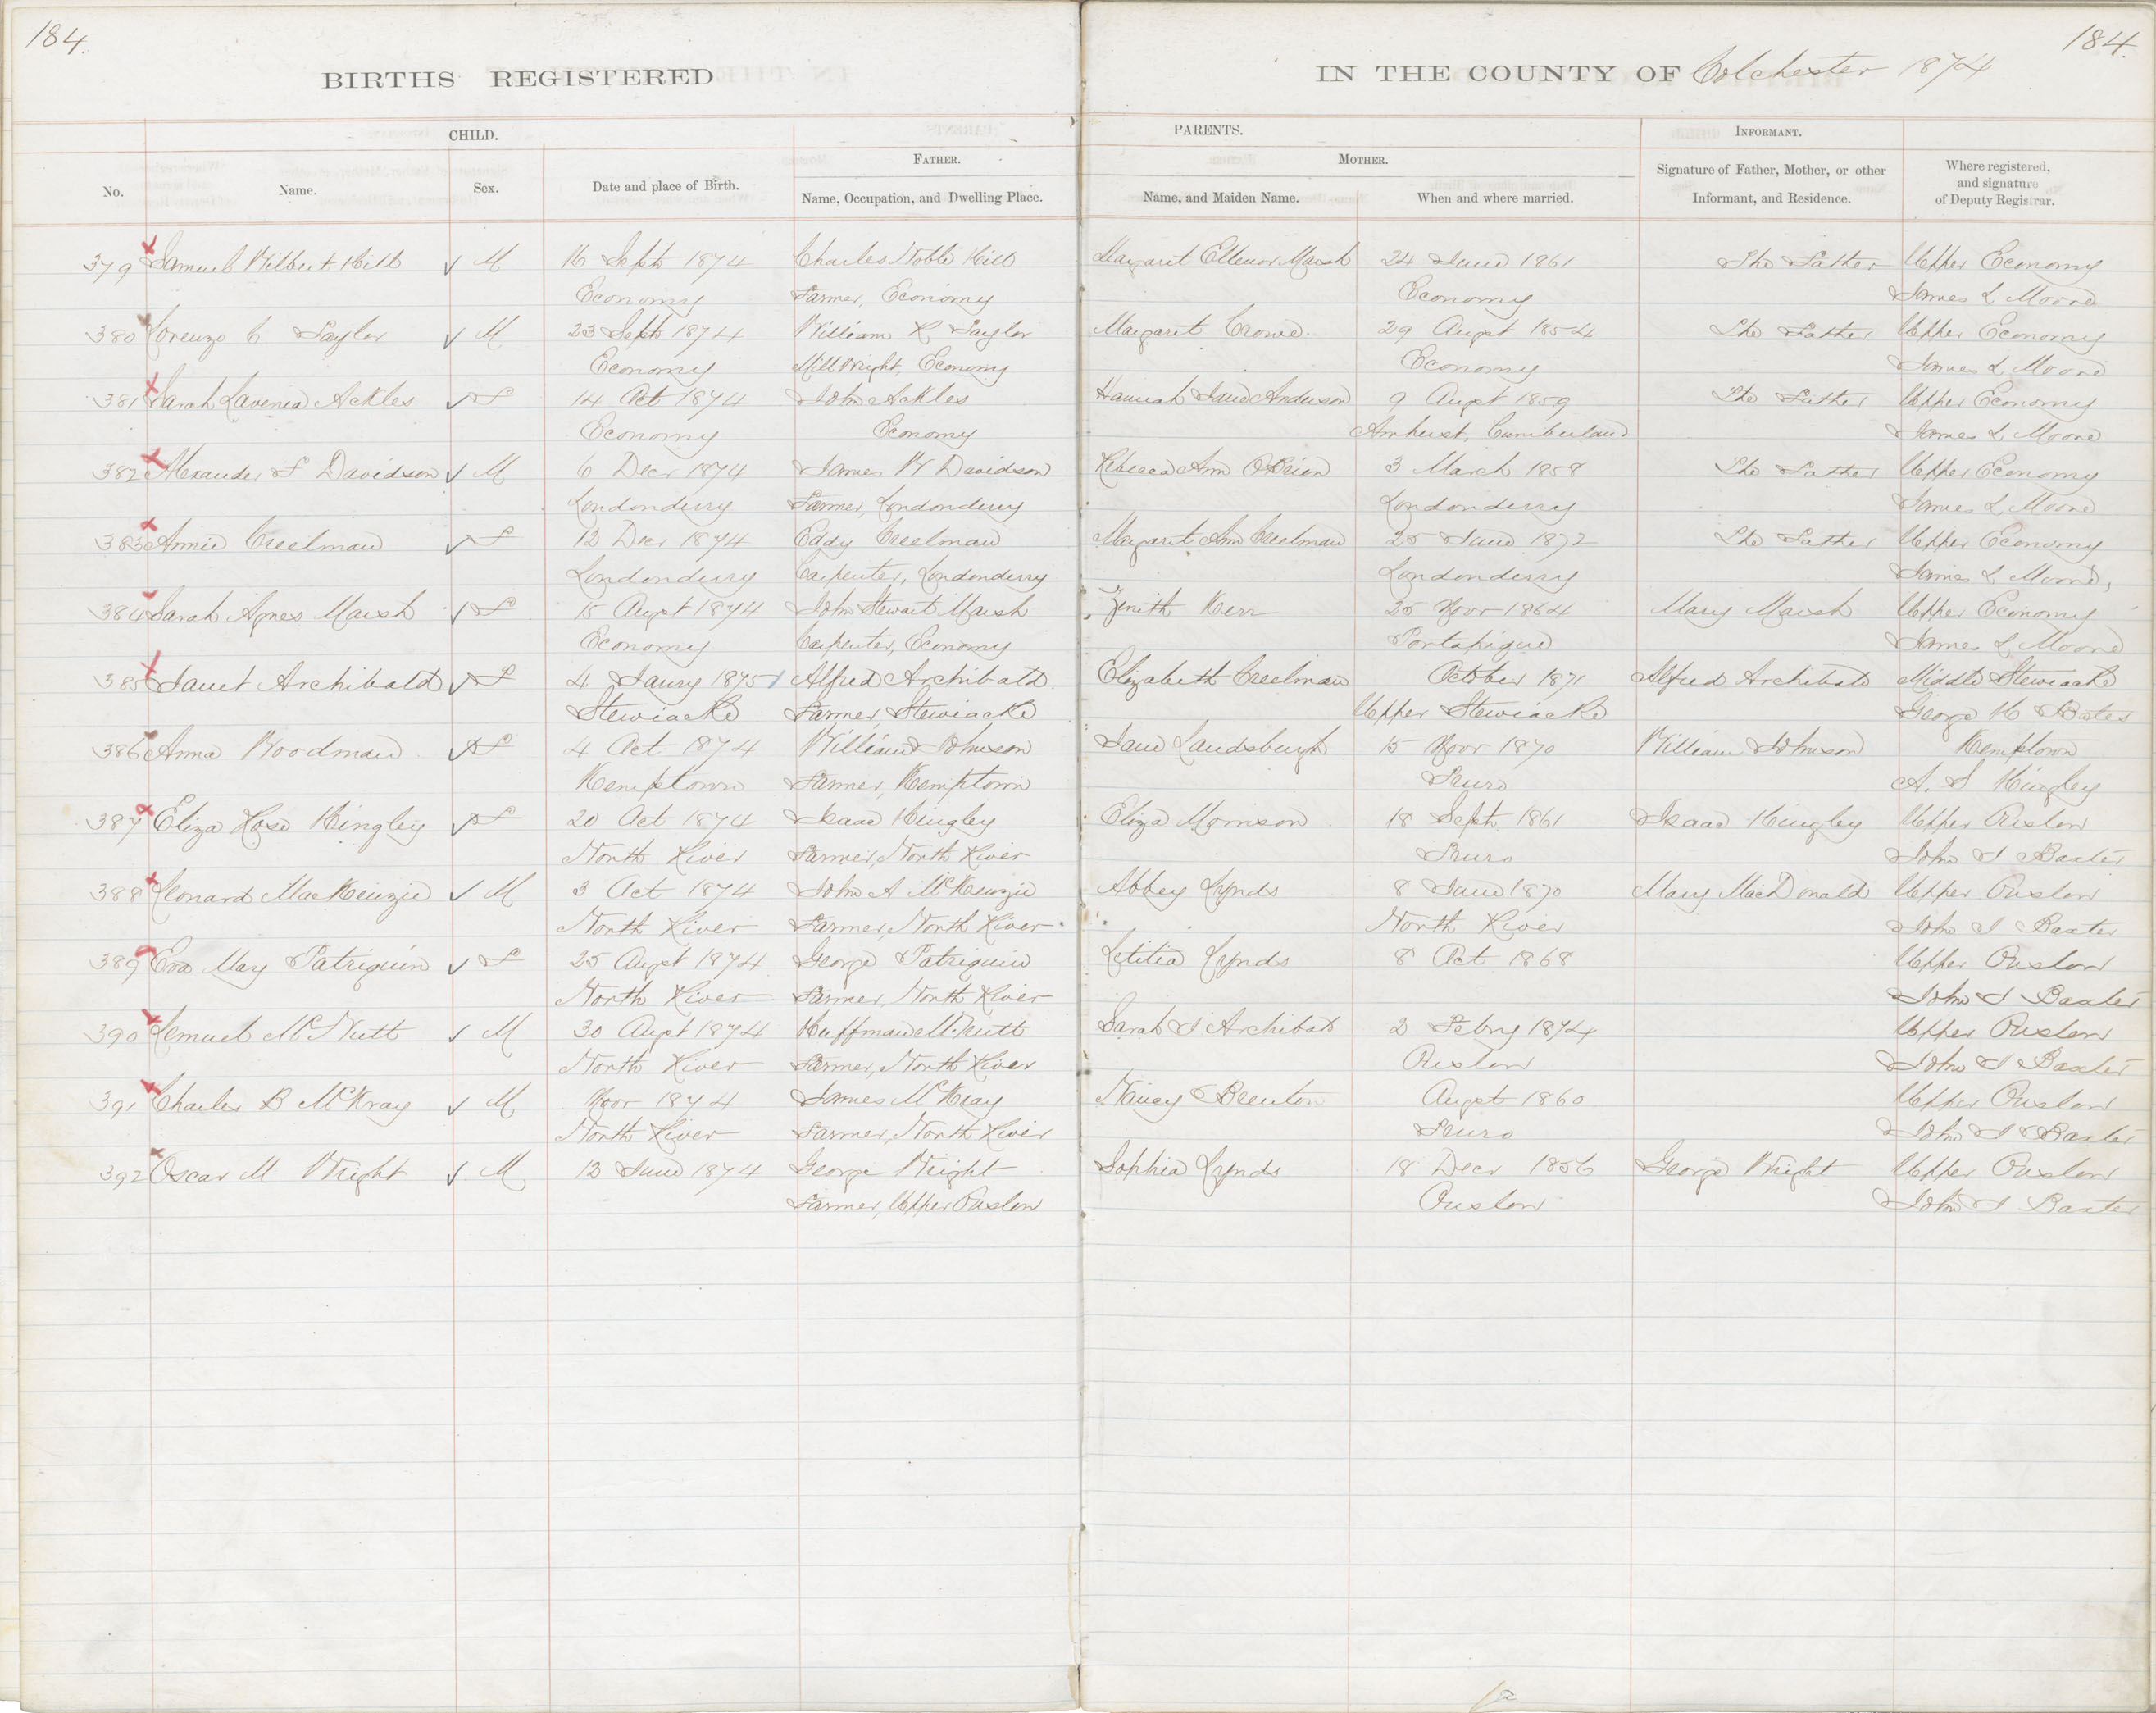 184.
184.
BIRTHS REGISTERED
IN THE COUNTY OF Colchester 1874
CHILD.
PARENTS.
INFORMANT.
FATHER.
MOTHER.
No.
Name.
Sex.
Date and place of Birth.
Name, Occupation, and Dwelling Place.
Name, and Maiden Name.
When and where married.
Signature of Father, Mother, or other
Informant, and Residence.
Where registered,
and signature
of Deputy Registrar.
379 Samuel Wilbert Hill M 16 Sept 1874 Charles Noble Hill Margaret Ellenor Marsh 24 June 1861 The Father Upper Economy
Economy Farmer, Economy Economy James L Moore
380 Lorenzo C Taylor M 23 Sept 1874 William R Taylor Margaret Crowe 29 Augst 1854 The Father Upper Economy
Economy Millwright, Economy Economy James L Moore
381 Sarah Lavenia Ackles F 14 Oct 1874 John Ackles Hannah Jane Anderson 9 Augst 1859 The Father Upper Economy
Economy Economy Amherst, Cumberland James L Moore
382 Alexander F Davidson M 6 Decr 1874 James W Davidson Rebecca Ann OBrion 3 March 1858 The Father Upper Economy
Londonderry Farmer, Londonderry Londonderry James L Moore
383 Annie Creelman F 12 Decr 1874 Eddy Creelman Margaret Ann Creelman 25 June 1872 The Father Upper Economy
Londonderry Carpenter, Londonderry Londonderry James L Moore,
384 Sarah Agnes Marsh F 15 Augst 1874 John Stewart Marsh Zenith Kerr 25 Novr 1864 Mary Marsh Upper Economy
Economy Carpenter, Economy Portapique James L Moore
385 Janet Archibald F 4 Jany 1875 Alfred Archibald Elizabeth Creelman October 1871 Alfred Archibald Middle Stewiacke
Stewiacke Farmer, Stewiacke Upper Stewiacke George H Bates
386 Anna Woodman F 4 Oct 1874 William Johnson Jane Landsburgh 15 Novr 1870 William Johnson Kemptown
Kemptown Farmer, Kemptown Truro A. S Kingley
387 Eliza Rose Kingley F 20 Oct 1874 Isaac Kingley Eliza Morrison 18 Sept 1861 Isaac Kingley Upper Onslow
North River Farmer, North River Truro John I Baxter
388 Leonard MacKenzie M 3 Oct 1874 John A McKenzie Abbey Lynds 8 June 1870 Mary MacDonald Upper Onslow
North River Farmer, North River North River John I Baxter
389 Eva May Patriquin F 25 Augst 1874 George Patriquin Letitia Lynds 8 Oct 1868 Upper Onslow
North River Farmer, North River John I Baxter
390 Lemuel McNutt M 30 Augst 1874 Huffman McNutt Sarah J Archibald 2 Febry 1874 Upper Onslow
North River Farmer, North River Onslow John I Baxter
391 Charles B McKray M Novr 1874 James McKray Nancy Brenton Augst 1860 Upper Onslow
North River Farmer, North River Truro John I Baxter
392 Oscar M Wright M 13 June 1874 George Wright Sophia Lynds 18 Decr 1856 George Wright Upper Onslow
Farmer, Upper Onslow Onslow John I Baxter